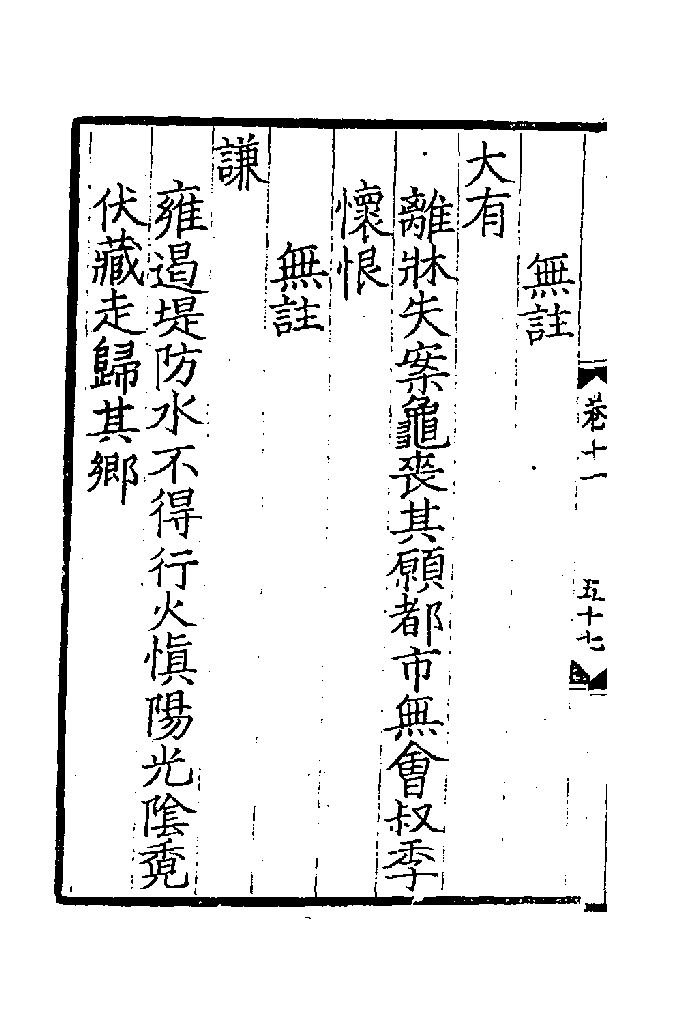 卷十一 五十七
無註
大有
離牀失案龜喪其願都市無會叔季
懷恨
無註
謙
雍遏堤防水不得行火愼陽光隂
伏藏走歸其鄉